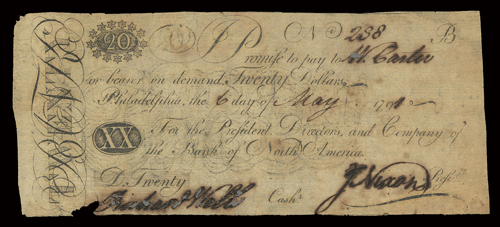 20 No 238 B
I Promise to pay to H. Carter
or bearer on demand Twenty Dollars
Philadelphia, the 6 day of May 1791
XX For the President, Directors, and Company of
the Bank of North America.
D. Twenty
Cashr. J Nixon Presidt.
TWENTY